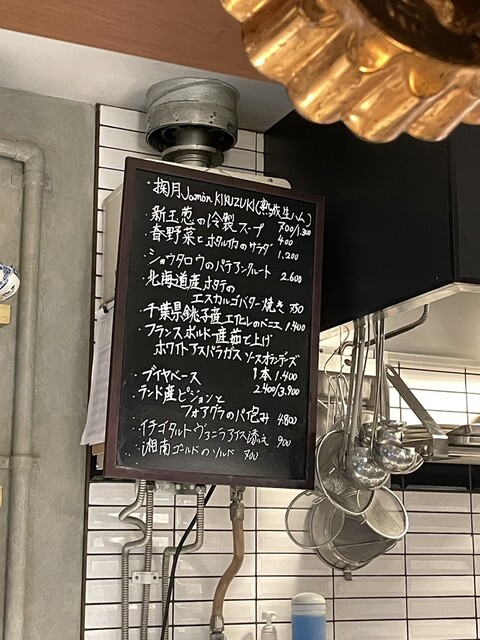 ・掬月Jamón KIKUZUKI(熟成生ハム)
700/1.300
・新玉葱の冷製スープ 400
・春野菜とホタルイカのサラダ 1.200
・ショウタロウのパテアンクルート 2.600
・北海道産ホタテの
エスカルゴバター焼き 750
・千葉県銚子産エイヒレのムニエル 1.400
・フランスボルドー産茹で上げ
ホワイトアスパラガス ソースオランデーズ
1本 1.400
・ブイヤベース 2400/3.900
・ランド産ピジョンと
フォアグラのパイ包み 4800
・イチゴタルト ヴァニラアイス添え 900
・湘南ゴールドのソルベ 700